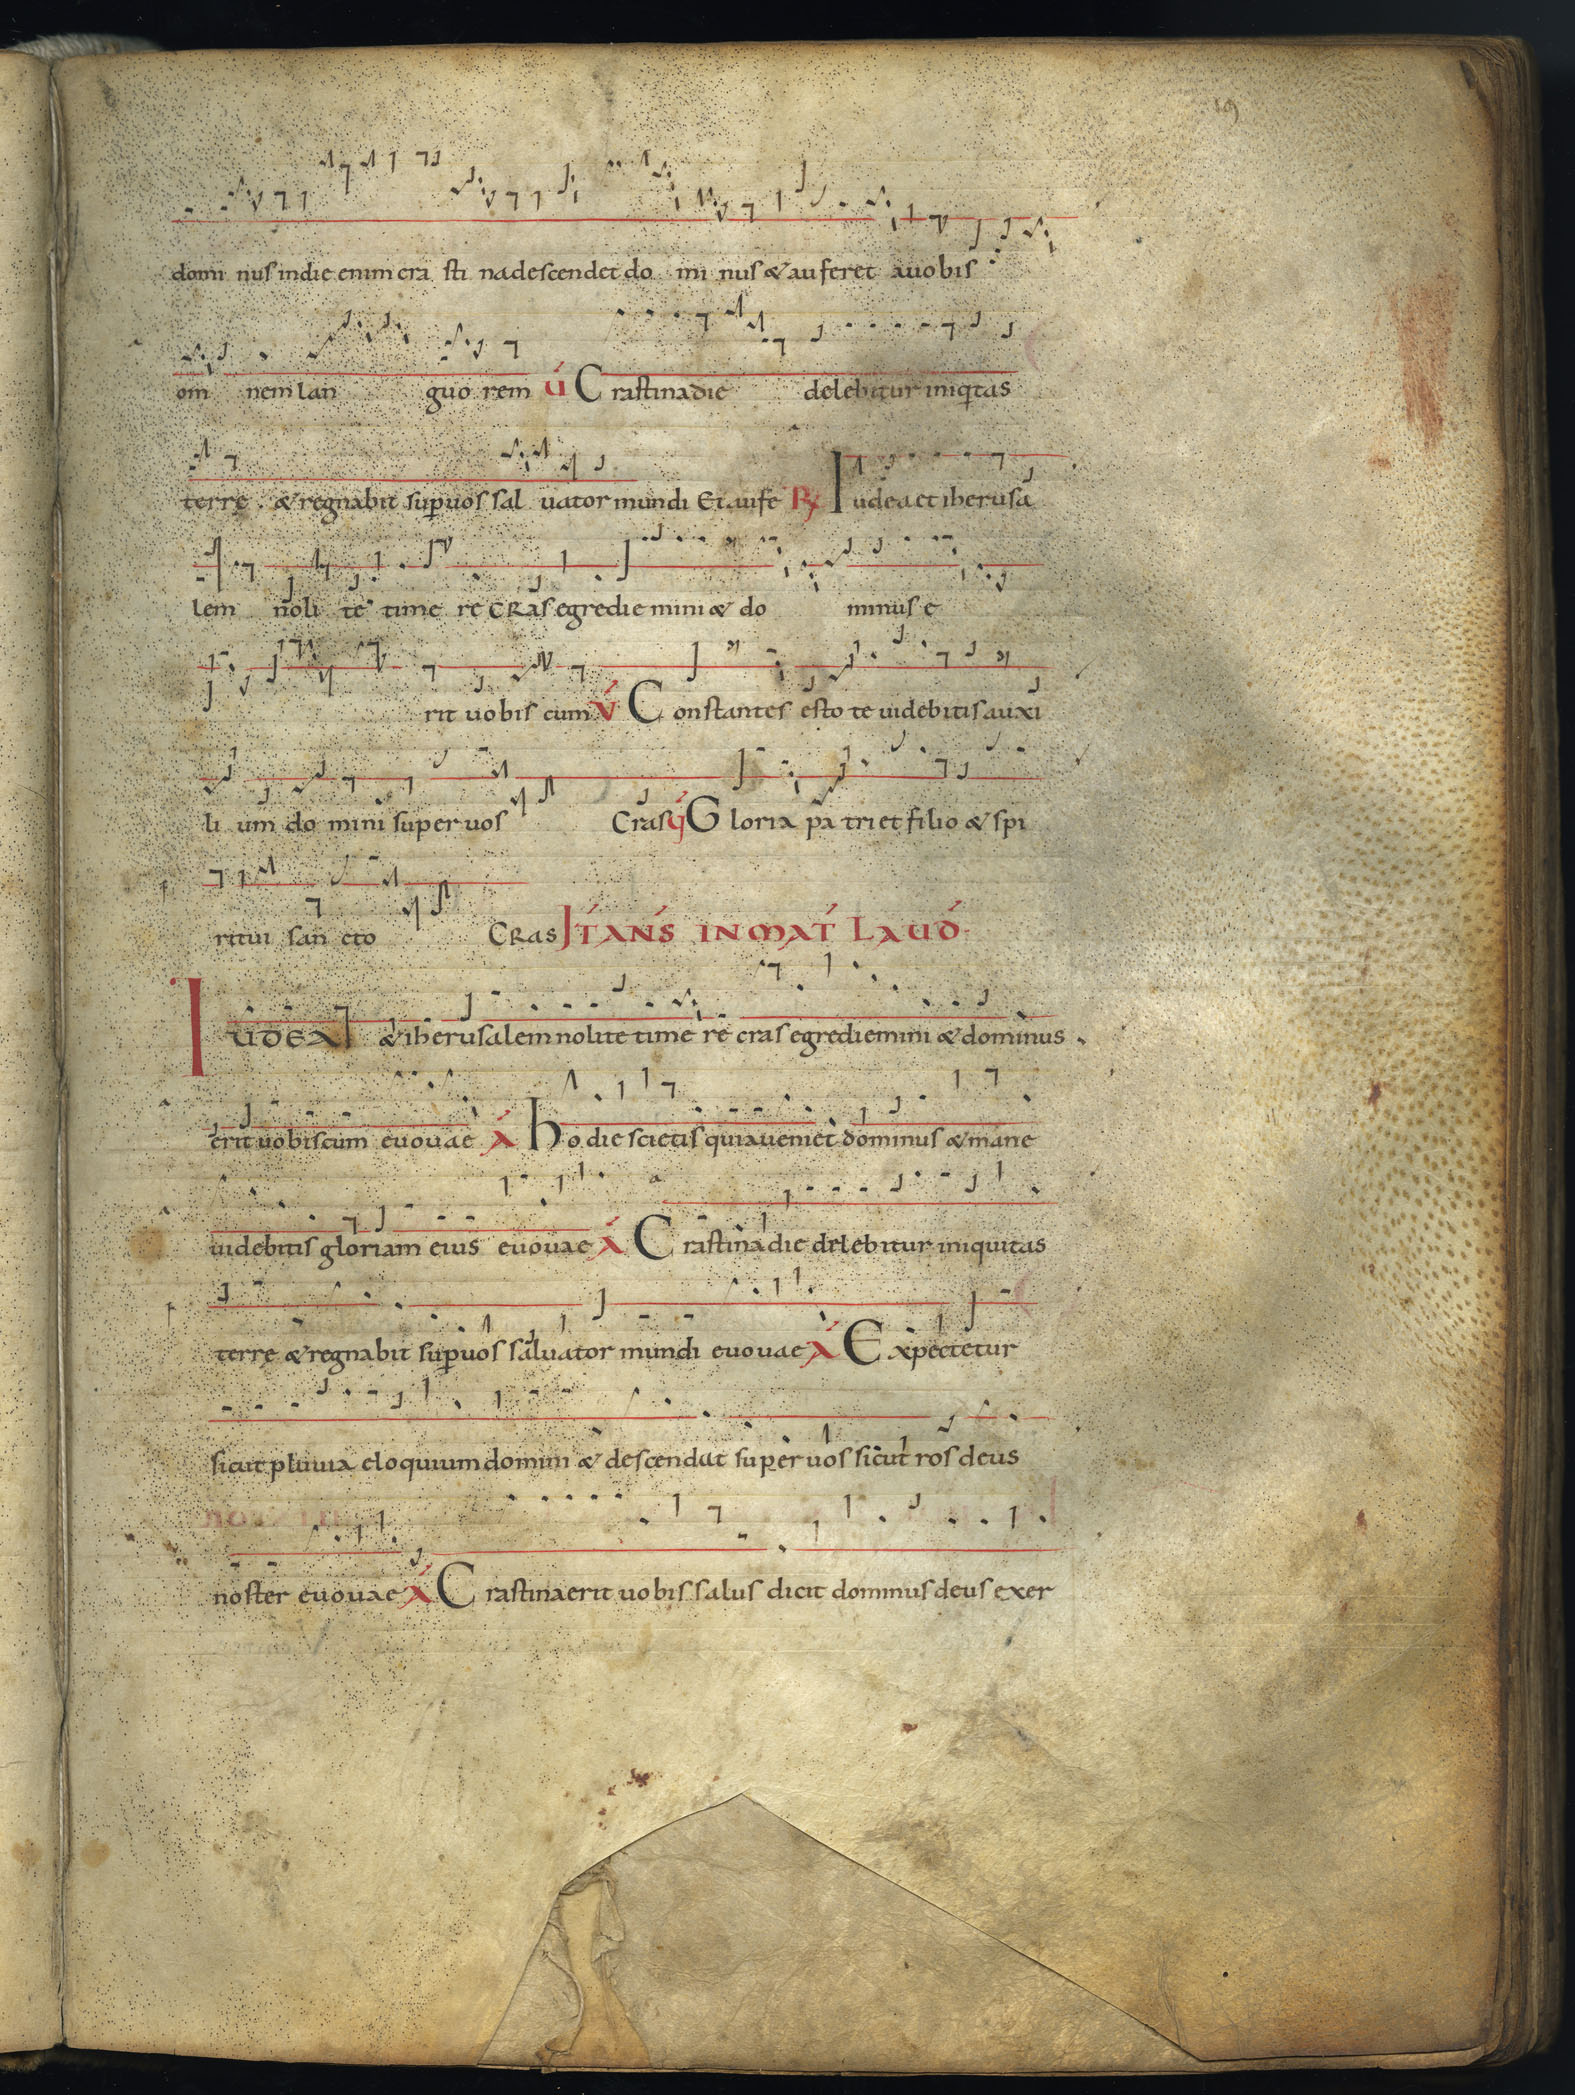 19
domi nus in die enim cra sti na descendet do mi nus & auferet a uobis
om nem lan guo rem V Crastina die delebitur iniqtas
terrę & regnabit sup uos sal uator mundi Et aufe R Iudea et iherusa
lem noli te time re CRas egredie mini & do minus e
rit uobis cum V Constantes esto te uidebitis auxi
li um do mini super uos Cras Gloria pa tri et filio & spi
ritui san cto CRas ITANS IN MAT LAUD
IUDEA & iherusalem nolite timere cras egrediemini & dominus
erit uobiscum euouae A hodie scietis quia ueniet dominus & mane
uidebitis gloriam eius euouae A Crastina die delebitur iniquitas
terrę & regnabit sup uos saluator mundi euouae A Expectetur
sicut pluuia eloquium domini & descendat super uos sicut ros deus
noster euouae A Crastina erit uobis salus dicit dominus deus exer